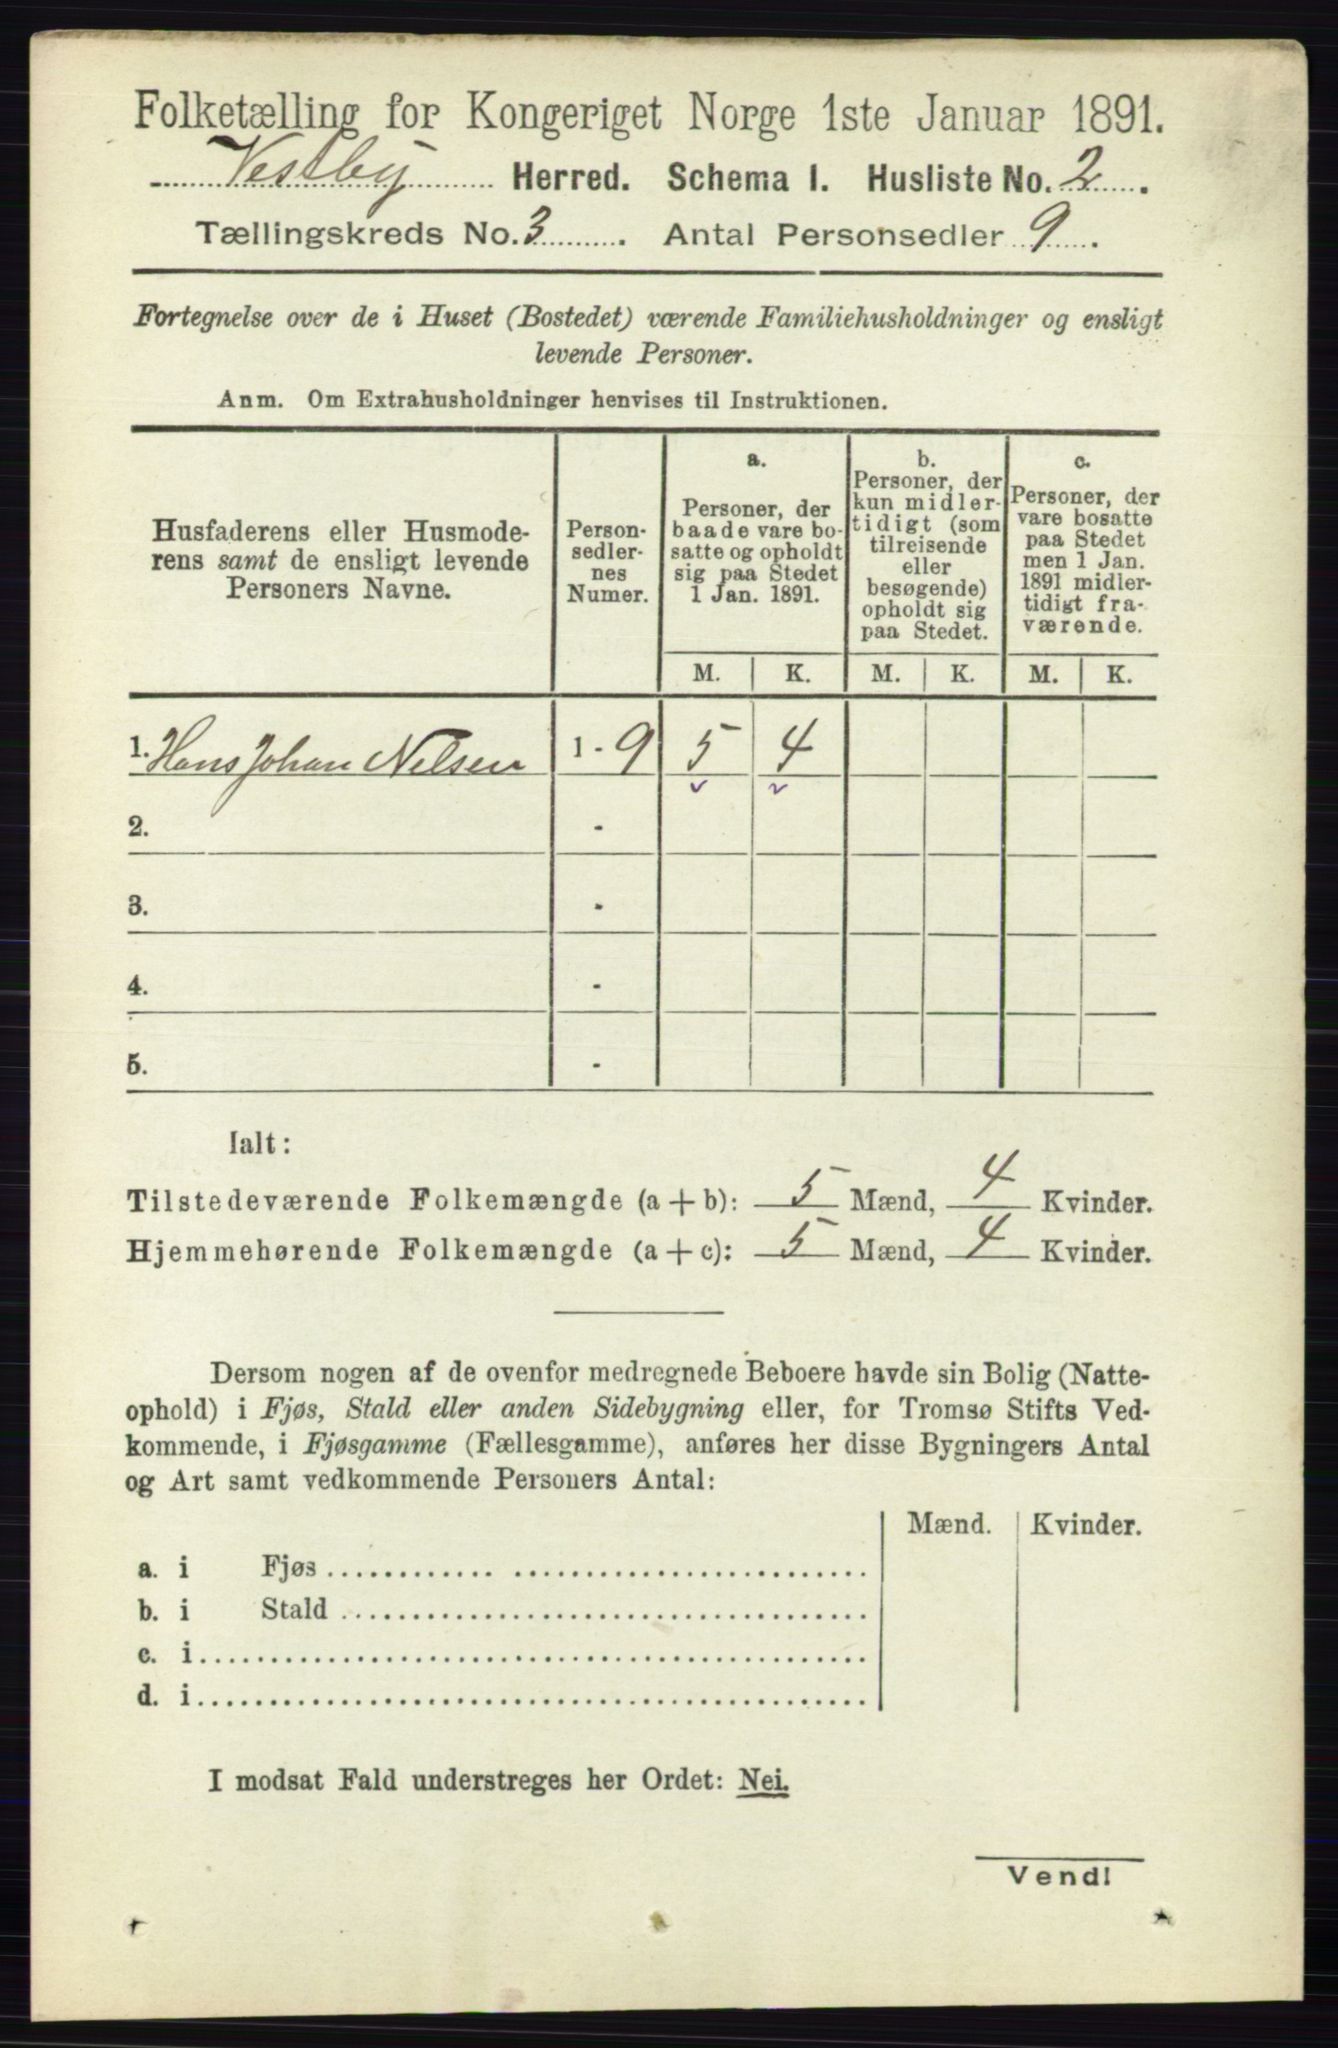 Folketælling for Kongeriget Norge 1ste Januar 1891.
Vestby Herred. Schema I. Husliste No. 2.
Tællingskreds No. 3. Antal Personsedler 9.
Fortegnelse over de i Huset (Bostedet) værende Familiehusholdninger og ensligt
levende Personer.
Anm. Om Extrahusholdninger henvises til Instruktionen.
Husfaderens eller Husmode-
rens samt de ensligt levende
Personers Navne.
Person-
sedler-
nes
Numer.
a.
Personer, der
baade vare bo-
satte og opholdt
sig paa Stedet
1 Jan. 1891.
b.
Personer, der
kun midler-
tidigt (som
tilreisende
eller
besøgende)
opholdt sig
paa Stedet.
c.
Personer, der
vare bosatte
paa Stedet
men 1 Jan.
1891 midler-
tidigt fra-
værende.
M. K. M. K. M. K.
1. Hans Johan Nelsen 1 - 9 5 4
2. -
3. -
4. -
5. -
Ialt:
Tilstedeværende Folkemængde (a + b): 5 Mænd, 4 Kvinder.
Hjemmehørende Folkemængde (a + c): 5 Mænd, 4 Kvinder.
Dersom nogen af de ovenfor medregnede Beboere havde sin Bolig (Natte-
ophold) i Fjøs, Stald eller anden Sidebygning eller, for Tromsø Stifts Ved-
kommende, i Fjøsgamme (Fællesgamme), anføres her disse Bygningers Antal
og Art samt vedkommende Personers Antal:
Mænd. Kvinder.
a. i Fjøs
b. i Stald
c. i
d. i
I modsat Fald understreges her Ordet: Nei.
Vend!